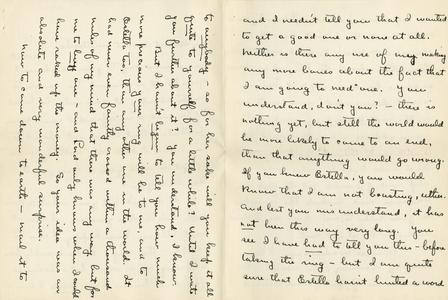 and I needn't tell you that I wanted
to get a good one or none at all.
Neither is there any use of my making
any more bones about the fact that
I am going to need one. You
understand, don't you? - there is
nothing yet, but still the world would
be more likely to come to an end,
than that anything would go wrong.
If you knew Estella, you would
know that I am not boasting, either.
And lest you mis understand, it has
not been this way very long. You
see I have had to tell you this - before
taking the ring - but I am quite
sure that Estella hasn't hinted a word
to anybody - so for her sake will you keep it all
quite to yourself for a little while? Until I write
you further about it? You understand, I know.
But I haven't begun to tell you how much
more precious your ring will be to me, and to
Estella too, than any other one in the world. It
had never even faintly crossed within a thousand
miles of my mind that there was any way but for
me to buy one - and Lord only knows where I could
have raked up the money. So your idea was an
absolute and very wonderful surprise.
Now to come down to earth - mail it to